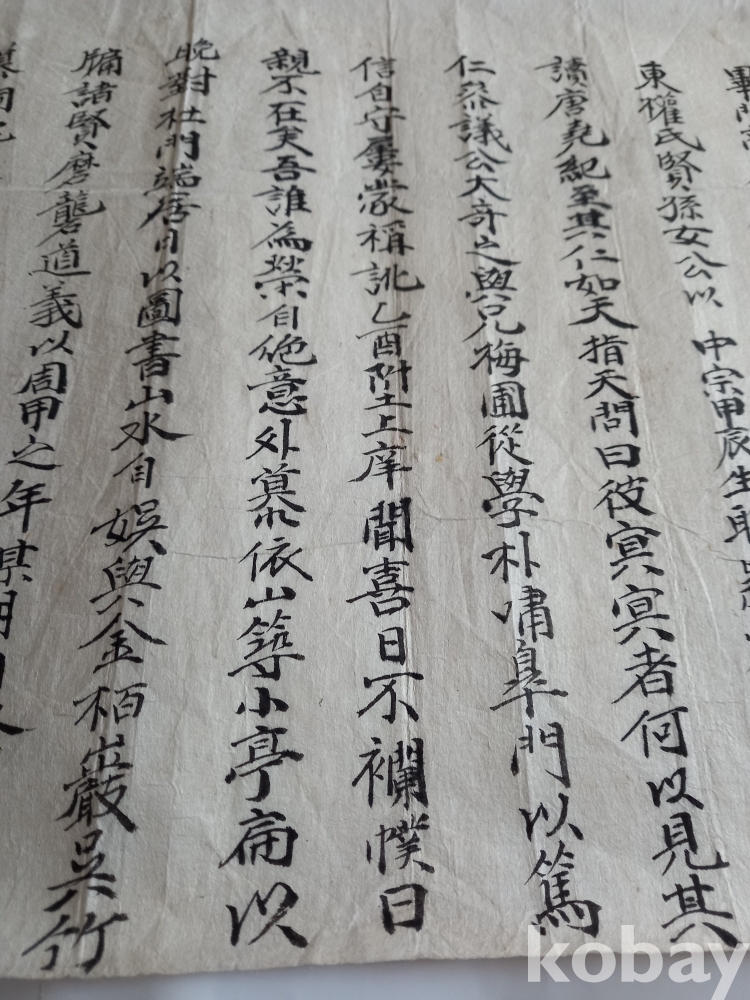 東權氏賢孫女公以 中宗甲辰生
讀唐堯紀至其仁如天指天問曰彼冥冥者何以見其
仁叅議公大奇之與兄梅圃從學朴嘯皐門以篤
信自守屢蒙稱詡乙酉附士上庠聞喜日不襴幞曰
親不在矣吾誰為榮自絶意外慕依山築小亭扁以
晩對杜門端居日以圖書山水自娛與金栢巖吳竹
牖諸賢磨礱道義以周甲之年
kobay